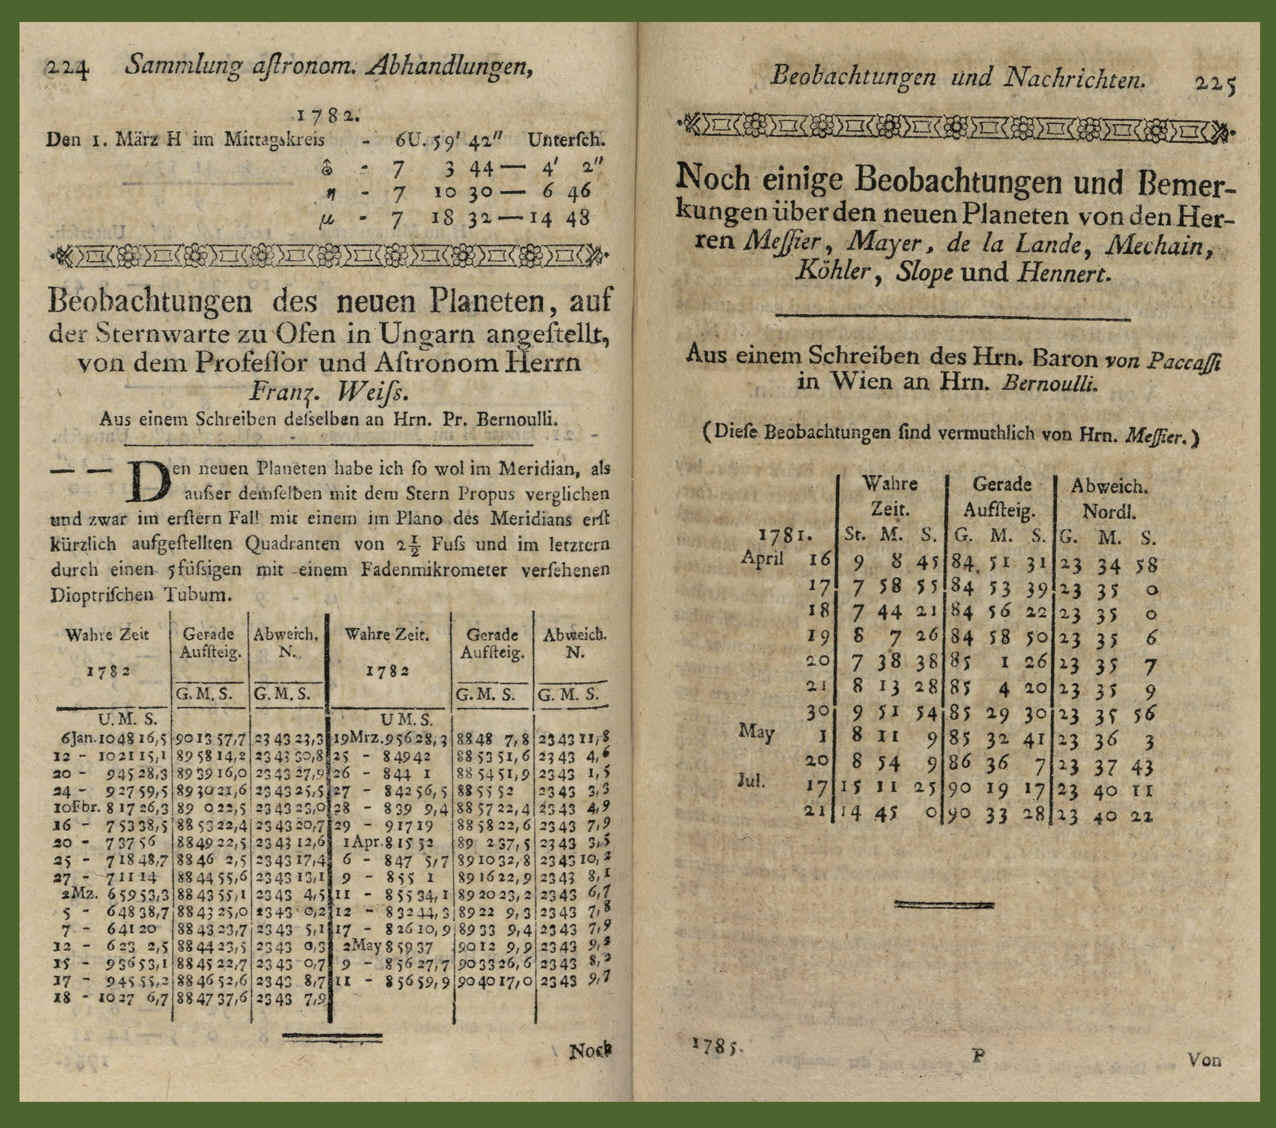 224 Sammlung aſtronom. Abhandlungen,
1782.
Den 1. März H im Mittagskreis - 6U. 59′ 42″ Unterſch.
δ - 7 3 44 — 4′ 2″
η - 7 10 30 — 6 46
μ - 7 18 32 — 14 48
Beobachtungen des neuen Planeten, auf
der Sternwarte zu Ofen in Ungarn angeſtellt,
von dem Profeſſor und Aſtronom Herrn
Franz. Weiſs.
Aus einem Schreiben deſselben an Hrn. Pr. Bernoulli.
— — Den neuen Planeten habe ich ſo wol im Meridian, als
auſser demſelben mit dem Stern Propus verglichen
und zwar im erſtern Fall mit einem im Plano des Meridians erſt
kürzlich aufgeſtellten Quadranten von 2½ Fuſs und im letztern
durch einen 5füſsigen mit einem Fadenmikrometer verſehenen
Dioptriſchen Tubum.
Wahre Zeit Gerade Abweich. Wahre Zeit. Gerade Abweich.
Aufſteig. N. Aufſteig. N.
1782 1782
G. M. S. G. M. S. G. M. S. G. M. S.
U. M. S. U M. S.
6Jan. 10 48 16,5 90 13 57,7 23 43 23,3 19Mrz. 9 56 28,3 88 48 7,8 23 43 11,8
12 - 10 21 15,1 89 58 14,2 23 43 30,8 25 - 8 49 42 88 53 51,6 23 43 4,6
20 - 9 45 28,3 89 39 16,0 23 43 27,9 26 - 8 44 1 88 54 51,9 23 43 1,5
24 - 9 27 59,5 89 30 21,6 23 43 25,5 27 - 8 42 56,5 88 55 52 23 43 3,3
10Fbr. 8 17 26,3 89 0 22,5 23 43 23,0 28 - 8 39 9,4 88 57 22,4 23 43 4,9
16 - 7 53 38,5 88 53 22,4 23 43 20,7 29 - 9 17 19 88 58 22,6 23 43 7,9
20 - 7 37 56 88 49 22,5 23 43 12,6 1Apr. 8 15 52 89 2 37,5 23 43 3,5
25 - 7 18 48,7 88 46 2,5 23 43 17,4 6 - 8 47 5,7 89 10 32,8 23 43 10,2
27 - 7 11 14 88 44 55,6 23 43 13,1 9 - 8 55 1 89 16 22,9 23 43 8,1
2Mz. 6 59 53,3 88 43 55,1 23 43 4,5 11 - 8 55 34,1 89 20 23,2 23 43 6,7
5 - 6 48 38,7 88 43 25,0 23 43 0,2 12 - 8 32 44,3 89 22 9,3 23 43 7,8
7 - 6 41 20 88 43 23,7 23 43 5,1 17 - 8 26 10,9 89 33 9,4 23 43 7,9
12 - 6 23 2,5 88 44 23,5 23 43 0,3 2May 8 59 37 90 12 9,9 23 43 9,2
15 - 9 36 53,1 88 45 22,7 23 43 0,7 9 - 8 56 27,7 90 33 26,6 23 43 8,2
17 - 9 45 55,2 88 46 52,6 23 43 8,7 11 - 8 56 59,9 90 40 17,0 23 43 9,7
18 - 10 27 6,7 88 47 37,6 23 43 7,9
Noch
Beobachtungen und Nachrichten. 225
Noch einige Beobachtungen und Bemer-
kungen über den neuen Planeten von den Her-
ren Meſſier, Mayer, de la Lande, Mechain,
Köhler, Slope und Hennert.
Aus einem Schreiben des Hrn. Baron von Paccaſſi
in Wien an Hrn. Bernoulli.
(Dieſe Beobachtungen ſind vermuthlich von Hrn. Meſſier.)
Wahre Gerade Abweich.
Zeit. Aufſteig. Nordl.
1781. St. M. S. G. M. S. G. M. S.
April 16 9 8 45 84 51 31 23 34 58
17 7 58 55 84 53 39 23 35 0
18 7 44 21 84 56 22 23 35 0
19 8 7 26 84 58 50 23 35 6
20 7 38 38 85 1 26 23 35 7
21 8 13 28 85 4 20 23 35 9
30 9 51 54 85 29 30 23 35 56
May 1 8 11 9 85 32 41 23 36 3
20 8 54 9 86 36 7 23 37 43
Jul. 17 15 11 25 90 19 17 23 40 11
21 14 45 0 90 33 28 23 40 22
1785. P Von